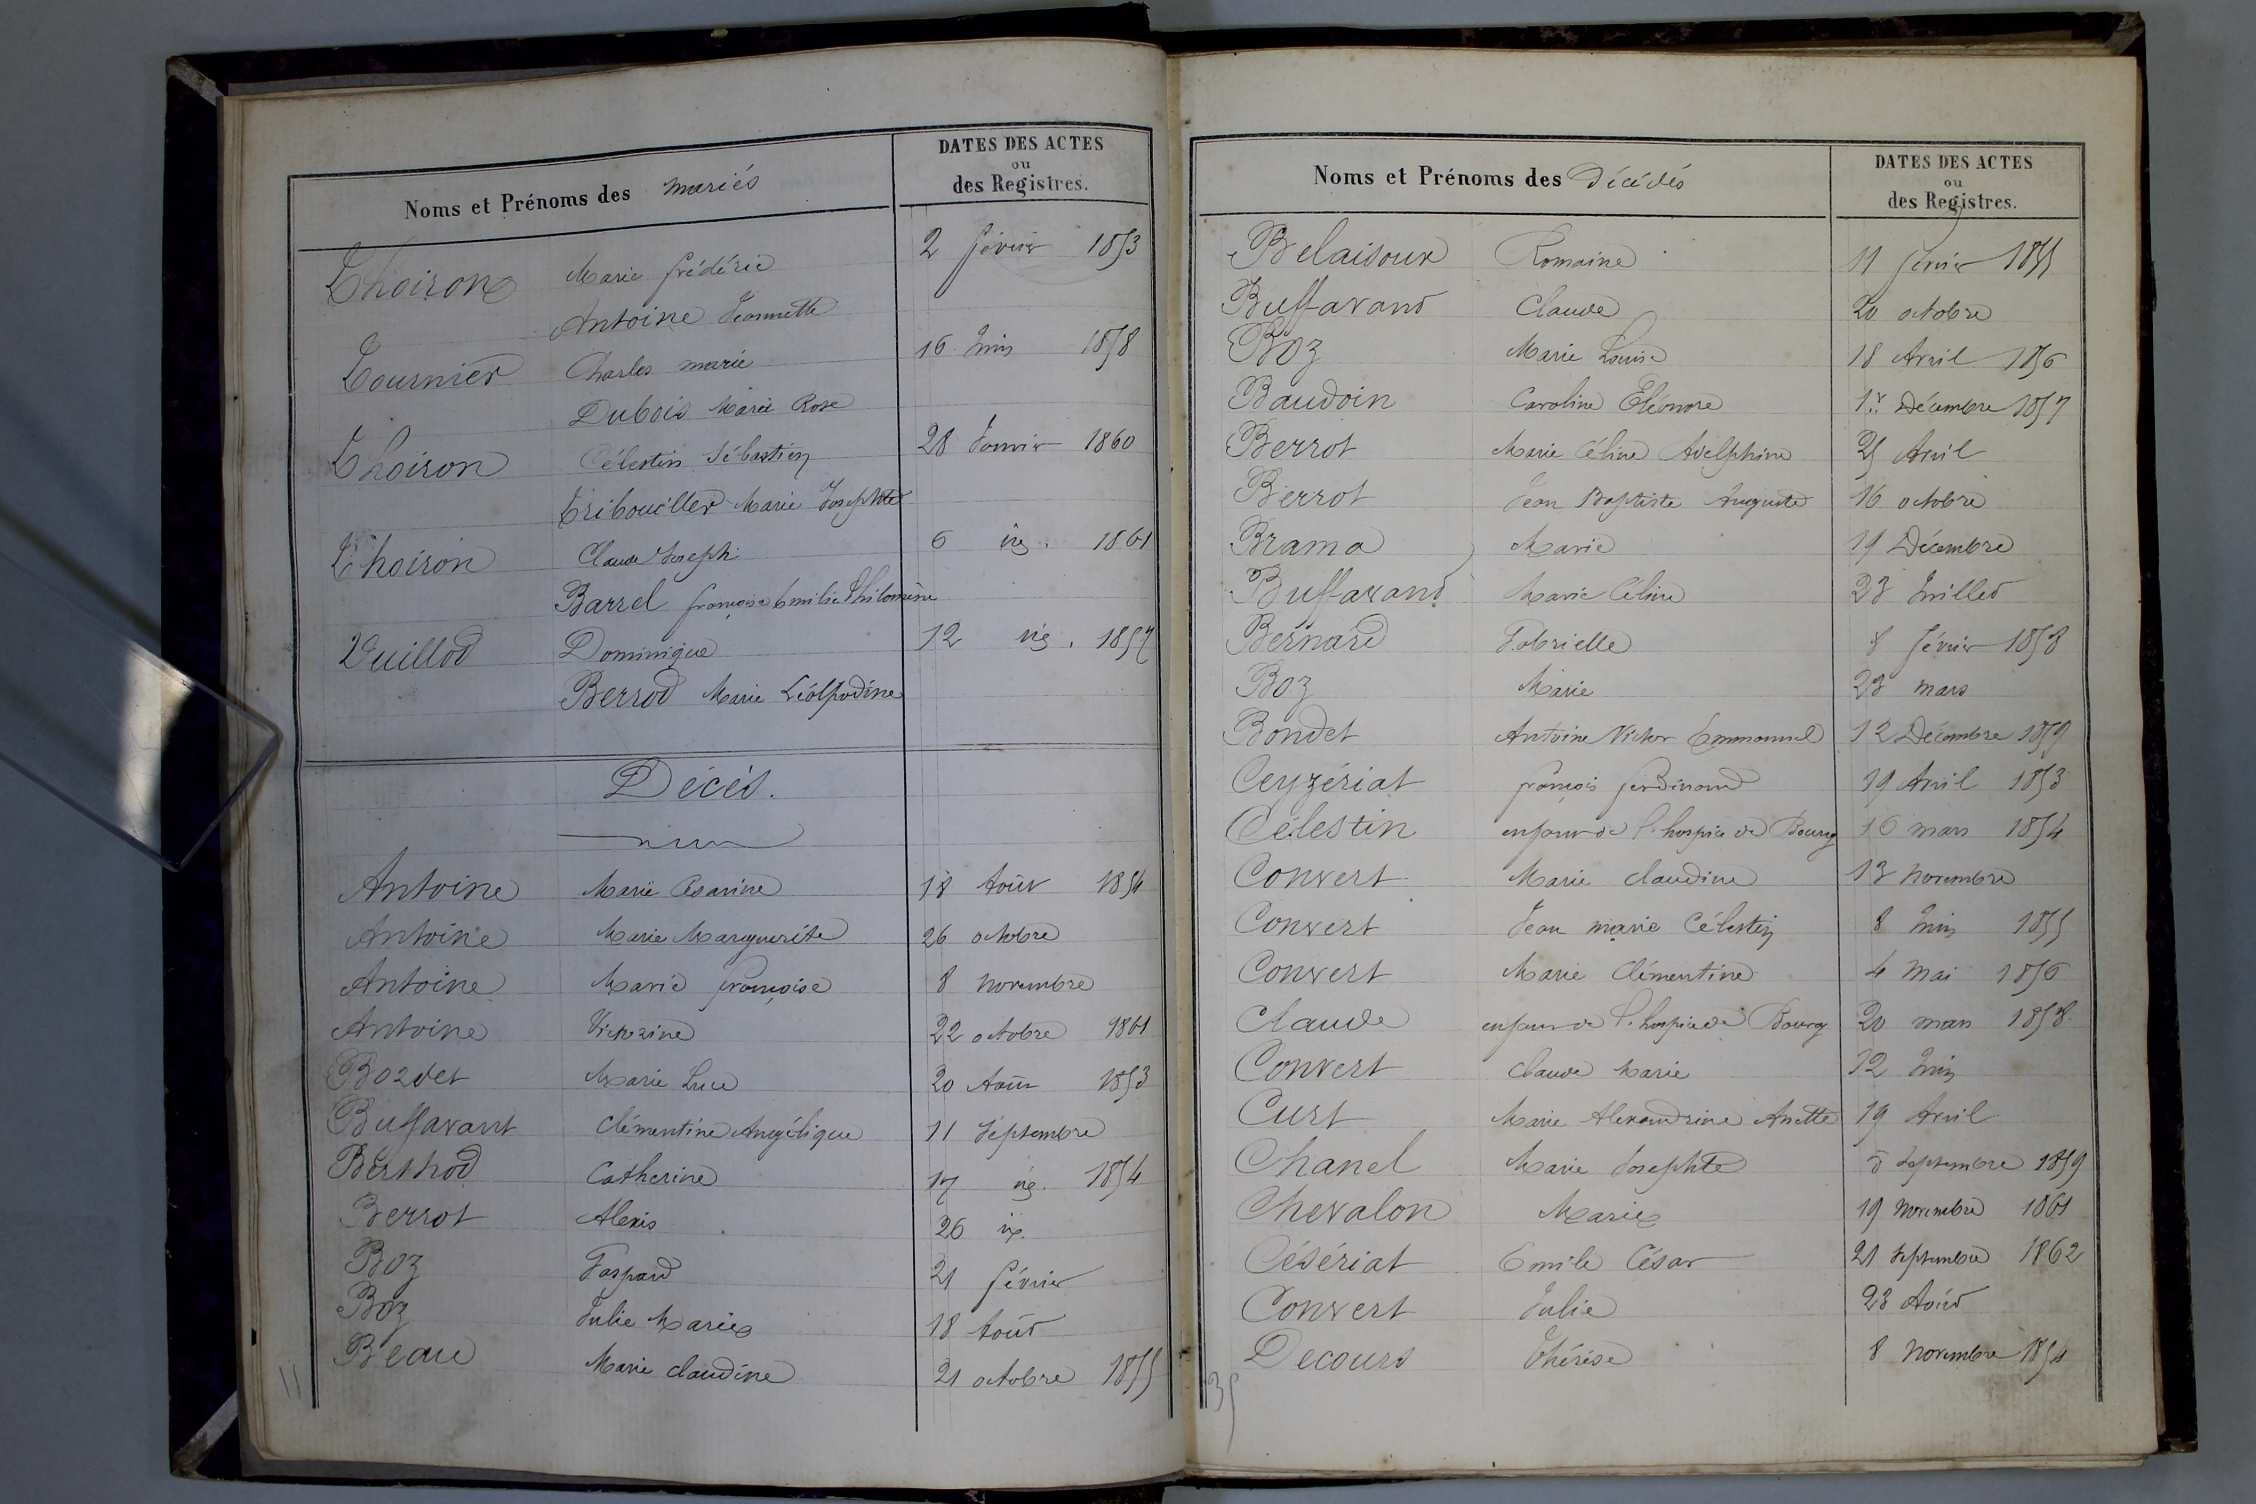 Noms et Prénoms des mariés
DATES DES ACTES
ou
des Registres.
Thoiron Marie frédéric 2 février 1853
Antoine Jeannette
Tournier Charles marie 16 Juin 1858
Dubois Marie Rose
Thoiron Célestin Sébastien 28 Janvier 1860
Tribouiller Marie Josephte
Thoiron Claude Joseph 6 1861
Barrel françoise Emilie Philomène
Vuillod Dominique 12 1857
Berrod Marie Léolpodine
Décés.
Antoine Marie Césarine 18 Août 1854
Antoine Marie Marguerite 26 octobre
Antoine Marie françoise 8 novembre
Antoine Victorine 22 octobre 1861
Bozdet Marie Luce 20 Août 1853
Buffavant Clémentine Angélique 11 Septembre
Berthod Catherine 17 1854
Berrot Alexis 26
Boz Gaspard 21 février
Boz Julie Marie 18 Août
Beau Marie claudine 21 octobre 1855
11
Noms et Prénoms des Décédés
DATES DES ACTES
ou
des Registres.
Belaisoux Romaine 11 février 1855
Buffavand Claude 20 octobre
Boz Marie Louise 18 Avril 1856
Baudoin Caroline Eléonore 1er Décembre 1857
Berrot Marie Céline Adelphine 25 Avril
Berrot Jean Baptiste Auguste 16 octobre
Brama Marie 19 Décembre
Buffavand Marie Céline 23 Juillet
Bernard Gabrielle 8 février 1858
Boz Marie 23 mars
Bondet Antoine Victor Emmanuel 12 Décembre 1859
Ceyzériat françois ferdinand 19 Avril 1853
Célestin enfant de l'hospice de Bourg 16 mars 1854
Convert Marie claudine 13 novembre
Convert Jean marie Célestin 8 Juin 1855
Convert Marie Clémentine 4 Mai 1856
Claude enfant de l'hospice de Bourg 20 mars 1858
Convert Claude Marie 12 Juin
Curt Marie Alexandrine Anette 19 Avril
Chanel Marie Josephte 5 Septembre 1859
Chevalon Marie 19 novembre 1861
Césériat Emile César 21 Septembre 1862
Convert Julie 23 Août
Decours Thérèse 8 novembre 1854
35